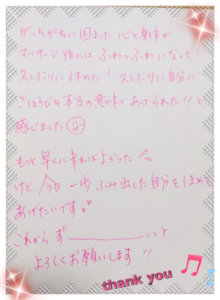 がっちがちに固ました心と身体が
マッサージ後には ふわっふわになって
久しぶりに休めた！久しぶりに自分に
ごほうびを本当の意味であげられた!!と
感じました
もっと早くに来ればよかった
けど 今日一歩ふみ出した自分をほめて
あげたいです
これから ずーーーっと
よろしくお願いします!!
thank you